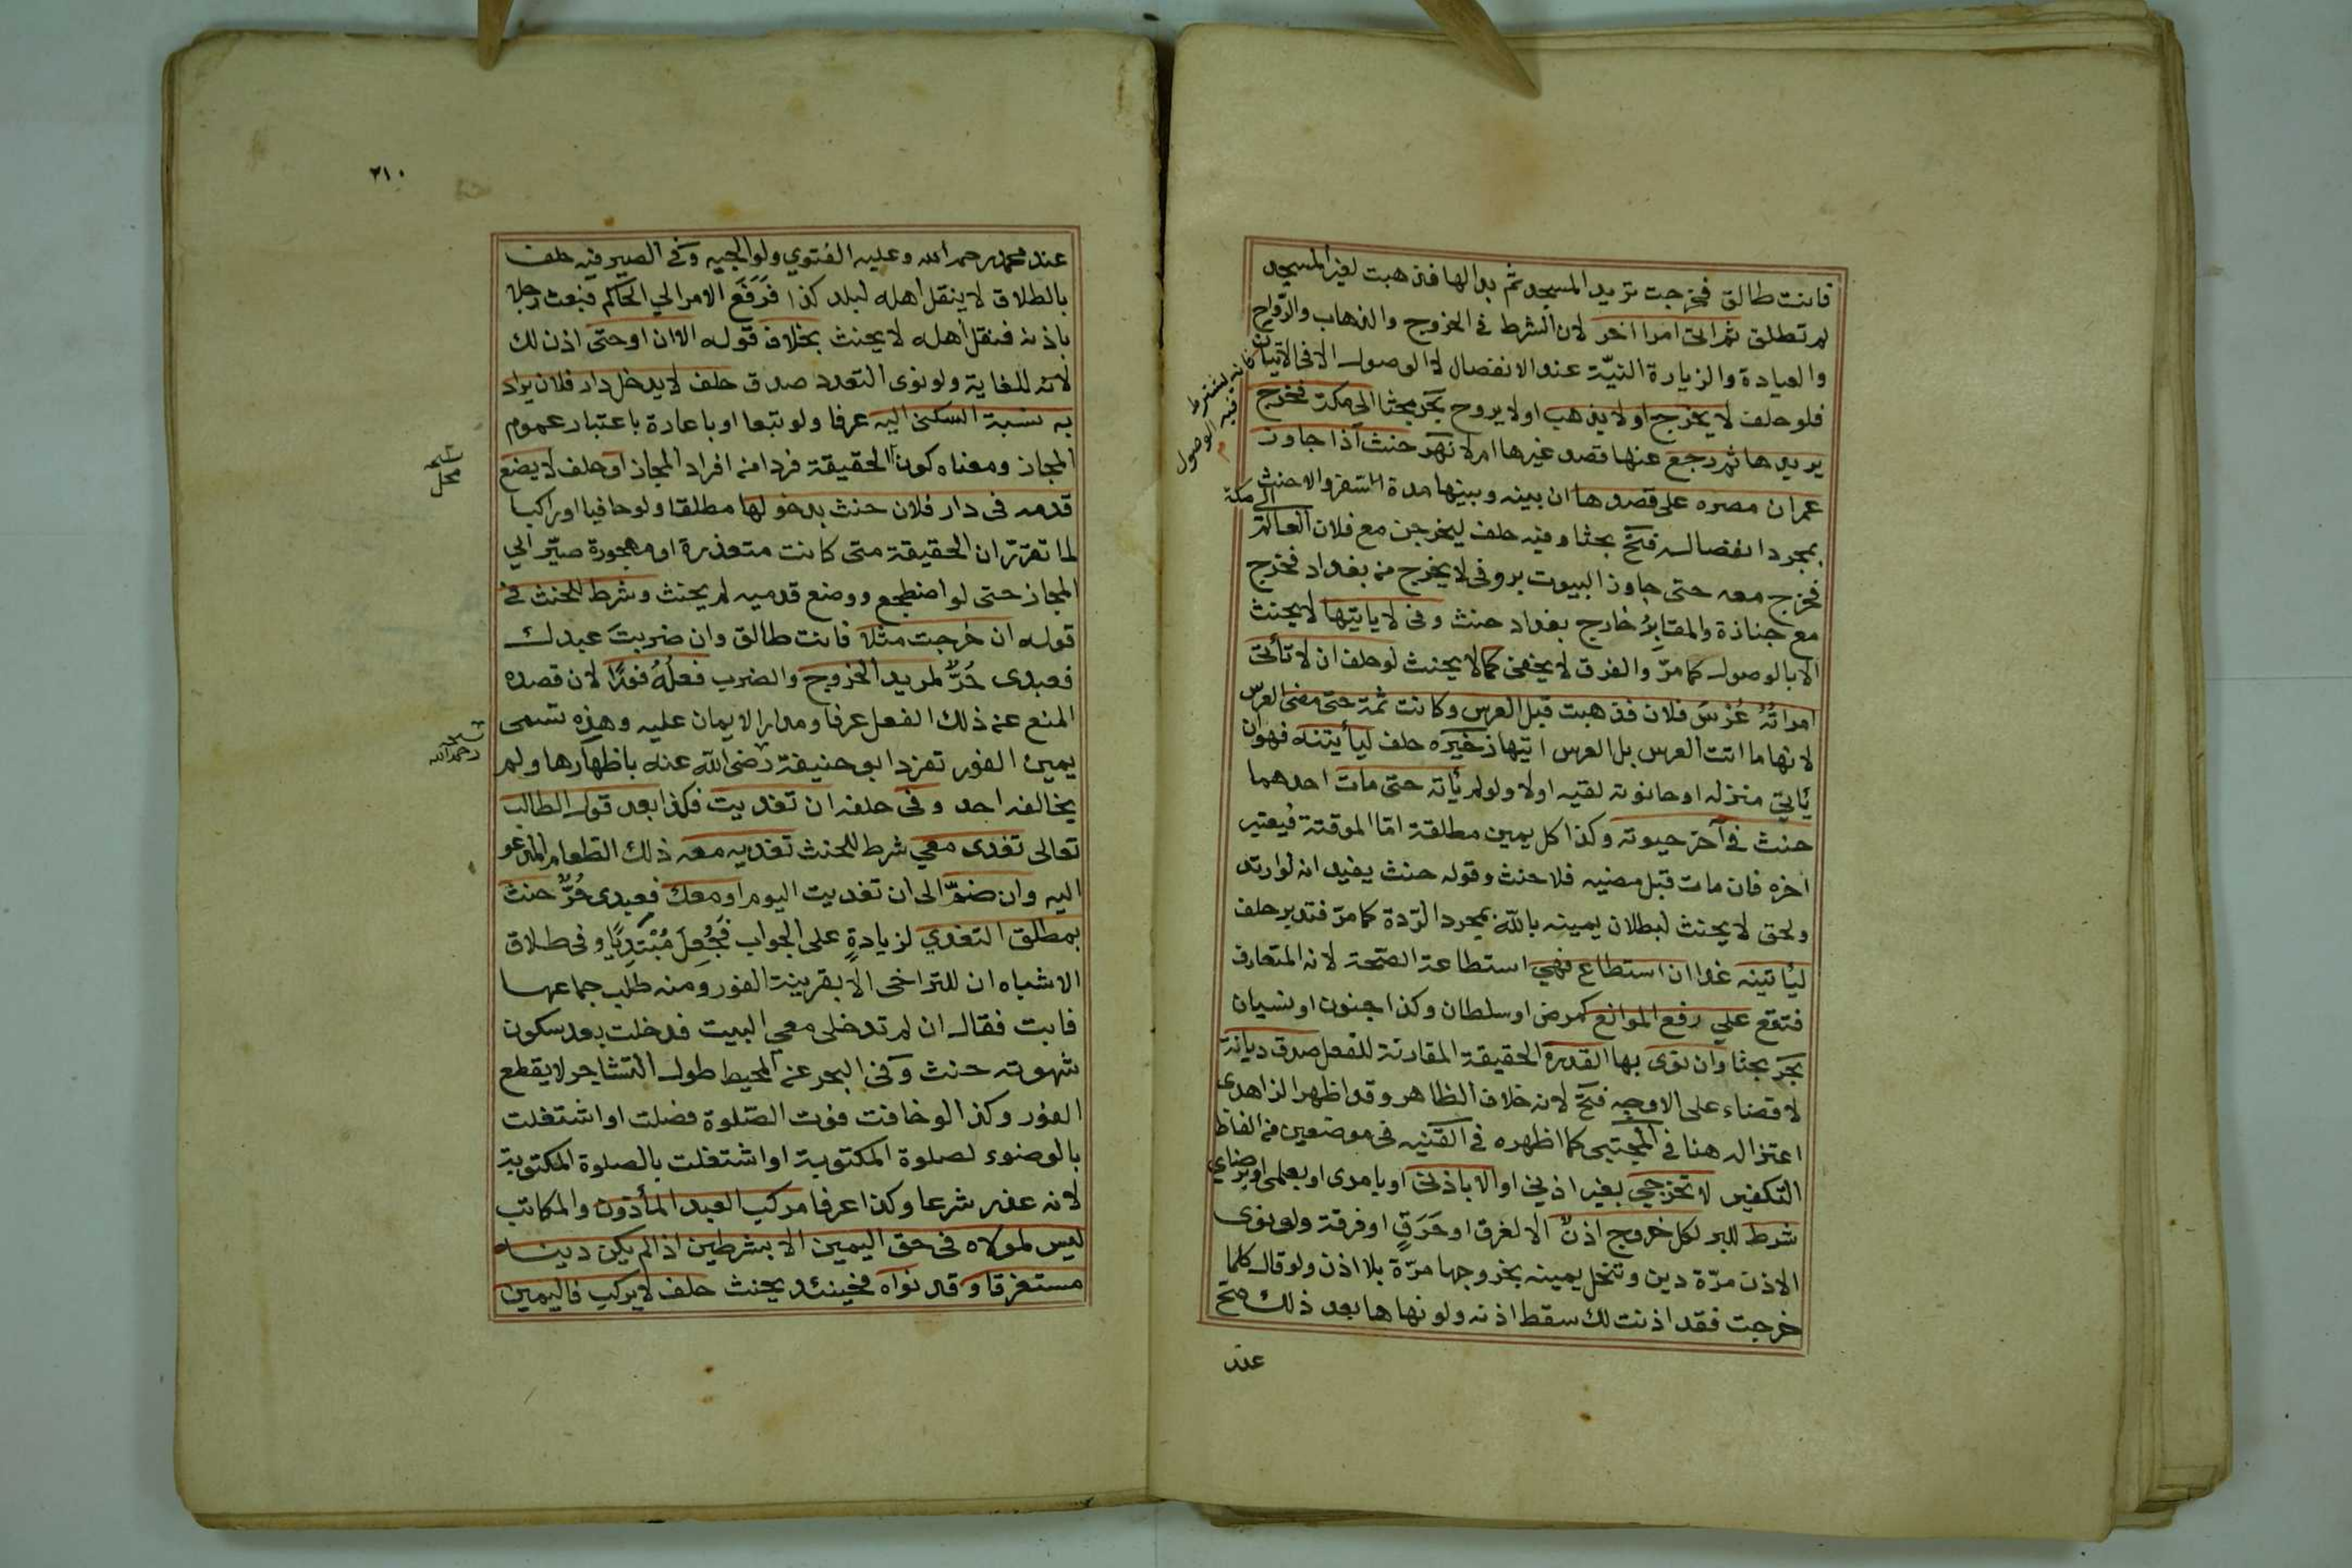 فانت طالق فخرجت تريد المسجد ثم بدا لها فذهبت لغير المسجد
لم تطلق ثم الى امرا اخر لان الشرط في الخروج والذهاب والرواح
والعيادة والزيارة النية عند الانفصال لا الوصول الا في الاتيان
فانه يشترط فيه الوصول
فلو حلف لا يخرج او لا يذهب او لا يروح بحر بحثا الى مكة فخرج
يريدها ثم رجع عنها قصد غيرها ام لا نهر حنث اذا جاوز
عمران مصره على قصدها ان بينه وبينها مدة السفر والا حنث
الى مكة
بمجرد انفصاله فتح بحثا وفيه حلف ليخرجن مع فلان العالم
فخرج معه حتى جاوز البيوت بر وفى لا يخرج من بغداد فخرج
مع جنازة والمقابر خارج بغداد حنث وفى لا ياتيها لا يحنث
الا بالوصول كما مر والفرق لا يخفى كما لا يحنث لو حلف ان لا تأتى
امراته عرس فلان فذهبت قبل العرس وكانت ثمة حتى مضى العرس
لانها ما اتت العرس بل العرس اتيها ذخيره حلف ليأتينه فهوان
يأتي منزله او حانوته لقيه اولا ولو لم يأته حتى مات احدهما
حنث في آخر حيوته وكذا كل يمين مطلقة اما الموقتة فيعتبر
اخره فان مات قبل مضيه فلا حنث وقوله حنث يفيد انه لو ارتد
ولحق لا يحنث لبطلان يمينه بالله بمجرد الردة كما مر فتدبر حلف
ليأتينه غدا ان استطاع فهي استطاعة الصحة لانه المتعارف
فتقع علي رفع الموانع كمرض او سلطان وكذا جنون او نسيان
بحر بحثا وان نوى بها القدرة الحقيقة المقارنة للفعل صدق ديانة
لا قضاء على الاوجه فتح لانه خلاف الظاهر وقد اظهر الزاهدي
اعتزاله هنا في المجتبى كما اظهره في القنيه في موضعين من الفاظ
التكفير لا تخرجي بغير اذني او الا باذني او بامرى او بعلمى او برضاي
شرط للبر لكل خروج اذن الا لغرق او حرق او فرقة ولو نوى
الاذن مرة دين وتنحل يمينه بخروجها مرة بلا اذن ولو قال كلما
خرجت فقد اذنت لك سقط اذنه ولو نهاها بعد ذلك صح
عند
٢١٠
عند محمد رحمه الله وعليه الفتوي ولوالجيه وفي الصيرفيه حلف
بالطلاق لا ينقل اهله لبلد كذا فرفع الامر الي الحاكم فبعث رجلا
باذنه فنقل اهله لا يحنث بخلاف قوله الا ان او حتى اذن لك
لانه للغاية ولو نوى التعدد صدق حلف لا يدخل دار فلان يراد
به نسبة السكنى اليه عرفا ولو تبعا او باعارة باعتبار عموم
المجاز ومعناه كون الحقيقة فردا من افراد المجاز او حلف لا يضع
قدمه فى دار فلان حنث بدخولها مطلقا ولو حافيا او راكبا
لما تقرر ان الحقيقة متى كانت متعذرة او مهجورة صير الي
المجاز حتى لو اضطجع ووضع قدميه لم يحنث وشرط للحنث في
قوله ان خرجت مثلا فانت طالق وان ضربت عبدك
فعبدى حر لمريد الخروج والضرب فعله فورا لان قصده
المنع عن ذلك الفعل عرفا ومدار الايمان عليه وهذه تسمى
يمين الفور تفرد ابو حنيفة رضي الله عنه باظهارها ولم
رحمه الله
يخالفه احد وفي حلفه ان تغديت فكذا بعد قول الطالب
تعالى تغدى معي شرط للحنث تغديه معه ذلك الطعام المدعو
اليه وان ضم الى ان تغديت اليوم او معك فعبدى حر حنث
بمطلق التغدي لزيادة على الجواب فجعل مبتديا وفى طلاق
الاشباه ان للتراخى الا بقرينة الفور ومنه طلب جماعها
فابت فقال ان لم تدخلى معي البيت فدخلت بعد سكون
شهوته حنث وفى البحر عن المحيط طول التشاجر لا يقطع
الفور وكذا لو خافت فوت الصلوة فصلت او اشتغلت
بالوضوء لصلوة المكتوبة او اشتغلت بالصلوة المكتوبة
لانه عذر شرعا وكذا عرفا مركب العبد المأذون والمكاتب
ليس لمولاه فى حق اليمين الا بشرطين اذا لم يكن دينه
مستغرقا وقد نواه فحينئذ يحنث حلف لا يركب فاليمين